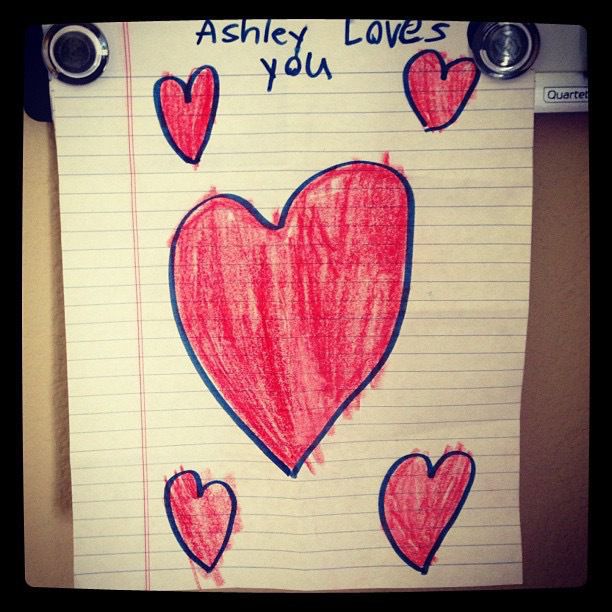 Ashley Loves
you
Quartet